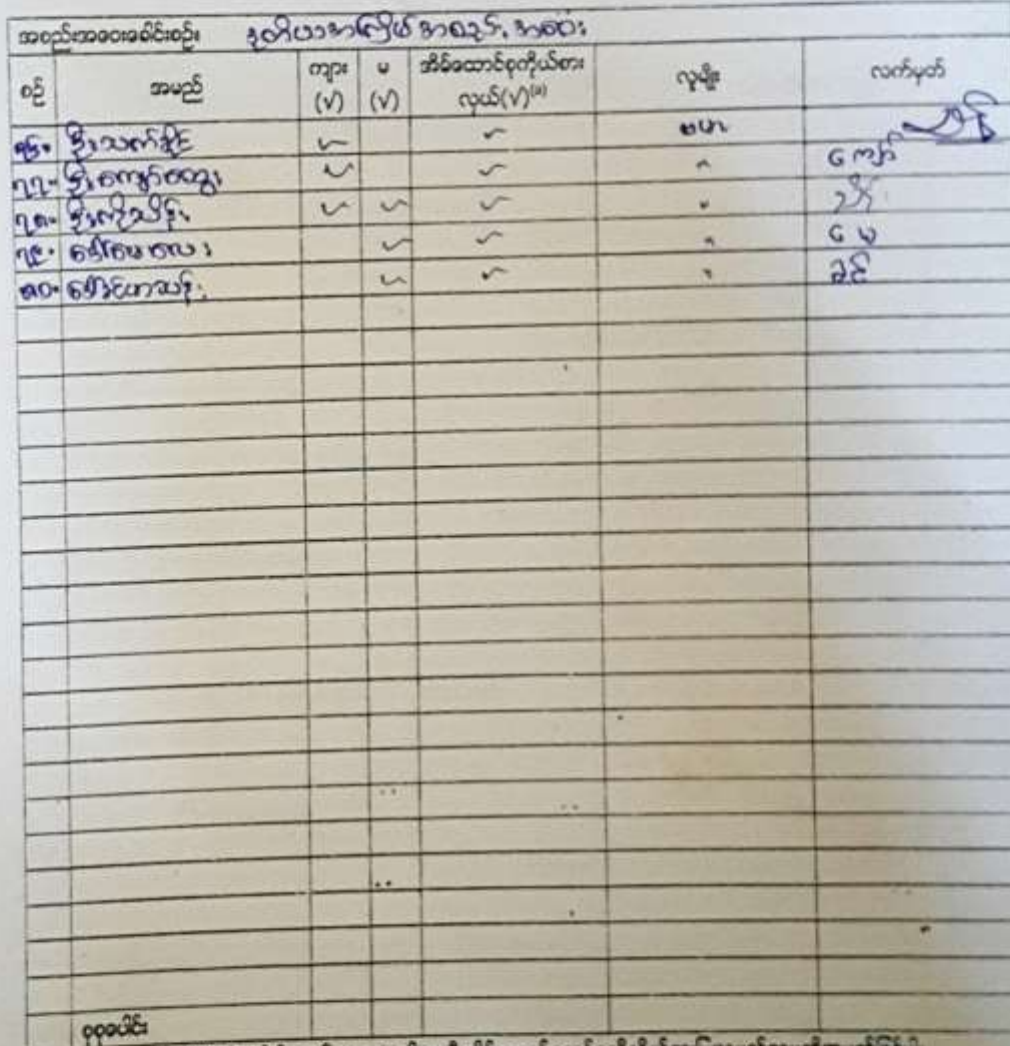 အစည်းအဝေးခေါင်းစဉ်။ ဒုတိယအကြိမ် အစည်းအဝေး
စဉ် အမည် ကျား (√) မ (√) အိမ်ထောင်စုကိုယ်စားလှယ်(√)⁽ᵃ⁾ လူမျိုး လက်မှတ်
၇၆။ ဦးသက်နိုင် ✓ ✓ ဗမာ
၇၇။ ဦးကျော်ထွေး ✓ ✓ " ကျော်
၇၈။ ဦးကိုသိန်း ✓ ✓ ✓ "
၇၉။ ဒေါ်မေလေး ✓ ✓ " မေ
၈၀။ ဒေါ်ခင်ဟသန်း ✓ ✓ " ခင်
စုစုပေါင်း